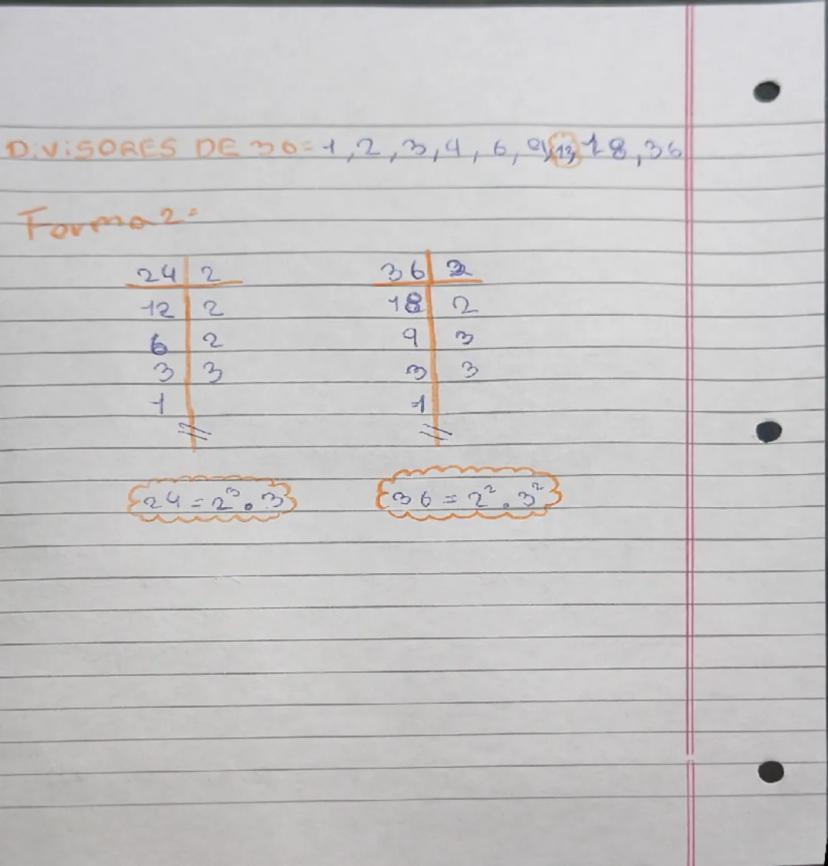 DiViSORES DE 36=1,2,3,4,6,9,12,18,36
Forma 2:
24 2 36 2
12 2 18 2
6 2 9 3
3 3 3 3
1 1
24=2³.3 36=2².3²